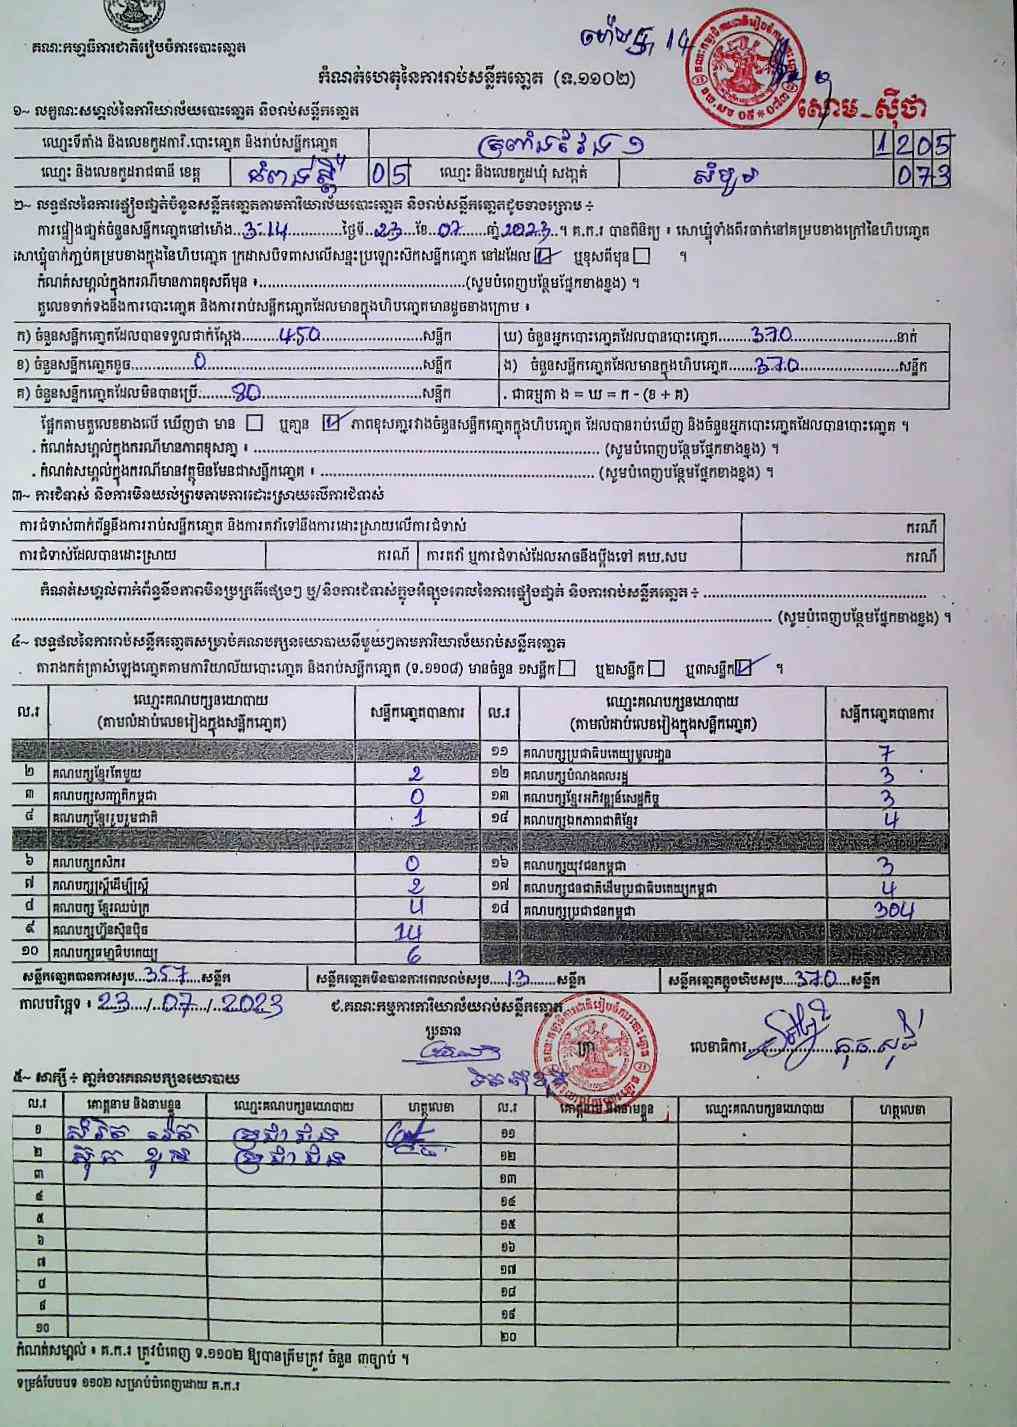 គណៈកម្មាធិការជាតិរៀបចំការបោះឆ្នោត
14
កំណត់ហេតុនៃការរាប់សន្លឹកឆ្នោត (ទ.១១០២)
សោម-ស៊ីថា
១~ លក្ខណៈសម្គាល់នៃការិយាល័យបោះឆ្នោត និងរាប់សន្លឹកឆ្នោត
ឈ្មោះទីតាំង និងលេខកូដការិ.បោះឆ្នោត និងរាប់សន្លឹកឆ្នោត ១ 1205
ឈ្មោះ និងលេខកូដរាជធានី ខេត្ត កំពង់ស្ពឺ 05 ឈ្មោះ និងលេខកូដឃុំ សង្កាត់ 073
២~ លទ្ធផលនៃការផ្ទៀងផ្ទាត់ចំនួនសន្លឹកឆ្នោតតាមការិយាល័យបោះឆ្នោត និងរាប់សន្លឹកឆ្នោតដូចខាងក្រោម ÷
ការផ្ទៀងផ្ទាត់ចំនួនសន្លឹកឆ្នោតនៅម៉ោង..3:14..........ថ្ងៃទី..23...ខែ..07......ឆ្នាំ.2023..។ គ.ក.រ បានពិនិត្យ ៖ សោឃ្លុំទាំងពីរចាក់នៅគម្របខាងក្រៅនៃហិបឆ្នោត
សោឃ្លុំចាក់ភ្ជាប់គម្របខាងក្នុងនៃហិបឆ្នោត ក្រដាសបិទពាសលើសន្ទះប្រឡោះស៊កសន្លឹកឆ្នោត នៅដដែល ☑ ឬខុសពីមុន ☐ ។
កំណត់សម្គាល់ក្នុងករណីមានភាពខុសពីមុន ៖..............................(សូមបំពេញបន្ថែមផ្នែកខាងខ្នង) ។
តួលេខទាក់ទងនឹងការបោះឆ្នោត និងការរាប់សន្លឹកឆ្នោតដែលមានក្នុងហិបឆ្នោតមានដូចខាងក្រោម ៖
ក) ចំនួនសន្លឹកឆ្នោតដែលបានទទួលជាក់ស្តែង.........450..............សន្លឹក ឃ) ចំនួនអ្នកបោះឆ្នោតដែលបានបោះឆ្នោត.......370................នាក់
ខ) ចំនួនសន្លឹកឆ្នោតខូច...........0....................សន្លឹក ង) ចំនួនសន្លឹកឆ្នោតដែលមានក្នុងហិបឆ្នោត......370...............សន្លឹក
គ) ចំនួនសន្លឹកឆ្នោតដែលមិនបានប្រើ......80.................សន្លឹក . ជាធម្មតា ង = ឃ = ក - (ខ + គ)
ផ្អែកតាមតួលេខខាងលើ ឃើញថា មាន ☐ ឬគ្មាន ☑ ភាពខុសគ្នារវាងចំនួនសន្លឹកឆ្នោតក្នុងហិបឆ្នោត ដែលបានរាប់ឃើញ និងចំនួនអ្នកបោះឆ្នោតដែលបានបោះឆ្នោត ។
. កំណត់សម្គាល់ក្នុងករណីមានភាពខុសគ្នា ៖ .............................. (សូមបំពេញបន្ថែមផ្នែកខាងខ្នង) ។
. កំណត់សម្គាល់ក្នុងករណីមានវត្ថុមិនមែនជាសន្លឹកឆ្នោត ៖ .............................. (សូមបំពេញបន្ថែមផ្នែកខាងខ្នង) ។
៣~ ការជំទាស់ និងការមិនយល់ព្រមតាមការដោះស្រាយលើការជំទាស់
ការជំទាស់ពាក់ព័ន្ធនឹងការរាប់សន្លឹកឆ្នោត និងការតវ៉ាទៅនឹងការដោះស្រាយលើការជំទាស់ ករណី
ការជំទាស់ដែលបានដោះស្រាយ ករណី ការតវ៉ា ឬការជំទាស់ដែលអាចនឹងប្តឹងទៅ គឃ.សប ករណី
កំណត់សម្គាល់ពាក់ព័ន្ធនឹងភាពមិនប្រក្រតីផ្សេងៗ ឬ/និងការជំទាស់ក្នុងអំឡុងពេលនៃការផ្ទៀងផ្ទាត់ និងការរាប់សន្លឹកឆ្នោត ÷ ..............................
.............................. (សូមបំពេញបន្ថែមផ្នែកខាងខ្នង) ។
៤~ លទ្ធផលនៃការរាប់សន្លឹកឆ្នោតសម្រាប់គណបក្សនយោបាយនីមួយៗតាមការិយាល័យរាប់សន្លឹកឆ្នោត
តារាងកត់ត្រាសំឡេងឆ្នោតតាមការិយាល័យបោះឆ្នោត និងរាប់សន្លឹកឆ្នោត (ទ.១១០៨) មានចំនួន ១សន្លឹក ☐ ឬ២សន្លឹក ☐ ឬ៣សន្លឹក ☑ ។
ល.រ ឈ្មោះគណបក្សនយោបាយ (តាមលំដាប់លេខរៀងក្នុងសន្លឹកឆ្នោត) សន្លឹកឆ្នោតបានការ ល.រ ឈ្មោះគណបក្សនយោបាយ (តាមលំដាប់លេខរៀងក្នុងសន្លឹកឆ្នោត) សន្លឹកឆ្នោតបានការ
១១ គណបក្សប្រជាធិបតេយ្យមូលដ្ឋាន 7
២ គណបក្សខ្មែរតែមួយ 2 ១២ គណបក្សបំណងពលរដ្ឋ 3
៣ គណបក្សសញ្ជាតិកម្ពុជា 0 ១៣ គណបក្សខ្មែរអភិវឌ្ឍន៍សេដ្ឋកិច្ច 3
៤ គណបក្សខ្មែររួបរួមជាតិ 1 ១៤ គណបក្សឯកភាពជាតិខ្មែរ 4
៦ គណបក្សកសិករ 0 ១៦ គណបក្សយុវជនកម្ពុជា 3
៧ គណបក្សស្ត្រីដើម្បីស្ត្រី 2 ១៧ គណបក្សជនជាតិដើមប្រជាធិបតេយ្យកម្ពុជា 4
៨ គណបក្ស ខ្មែរឈប់ក្រ 4 ១៨ គណបក្សប្រជាជនកម្ពុជា 304
៩ គណបក្សហ្វ៊ុនស៊ិនប៉ិច 14
១០ គណបក្សធម្មាធិបតេយ្យ 6
សន្លឹកឆ្នោតបានការសរុប..357....សន្លឹក សន្លឹកឆ្នោតមិនបានការពេលរាប់សរុប....13......សន្លឹក សន្លឹកឆ្នោតក្នុងហិបសរុប..370....សន្លឹក
កាលបរិច្ឆេទ ៖ 23/07/2023 ជ.គណៈកម្មការការិយាល័យរាប់សន្លឹកឆ្នោត
ប្រធាន
លេខាធិការ
៥~ សាក្សី ÷ ភ្នាក់ងារគណបក្សនយោបាយ
ល.រ គោត្តនាម និងនាមខ្លួន ឈ្មោះគណបក្សនយោបាយ ហត្ថលេខា ល.រ គោត្តនាម និងនាមខ្លួន ឈ្មោះគណបក្សនយោបាយ ហត្ថលេខា
១ ប្រជាជន ១១
២ ប្រជាជន ១២
៣ ១៣
៤ ១៤
៥ ១៥
៦ ១៦
៧ ១៧
៨ ១៨
៩ ១៩
១០ ២០
កំណត់សម្គាល់ ៖ គ.ក.រ ត្រូវបំពេញ ទ.១១០២ ឱ្យបានត្រឹមត្រូវ ចំនួន ៣ច្បាប់ ។
ទម្រង់បែបបទ ១១០២ សម្រាប់បំពេញដោយ គ.ក.រ